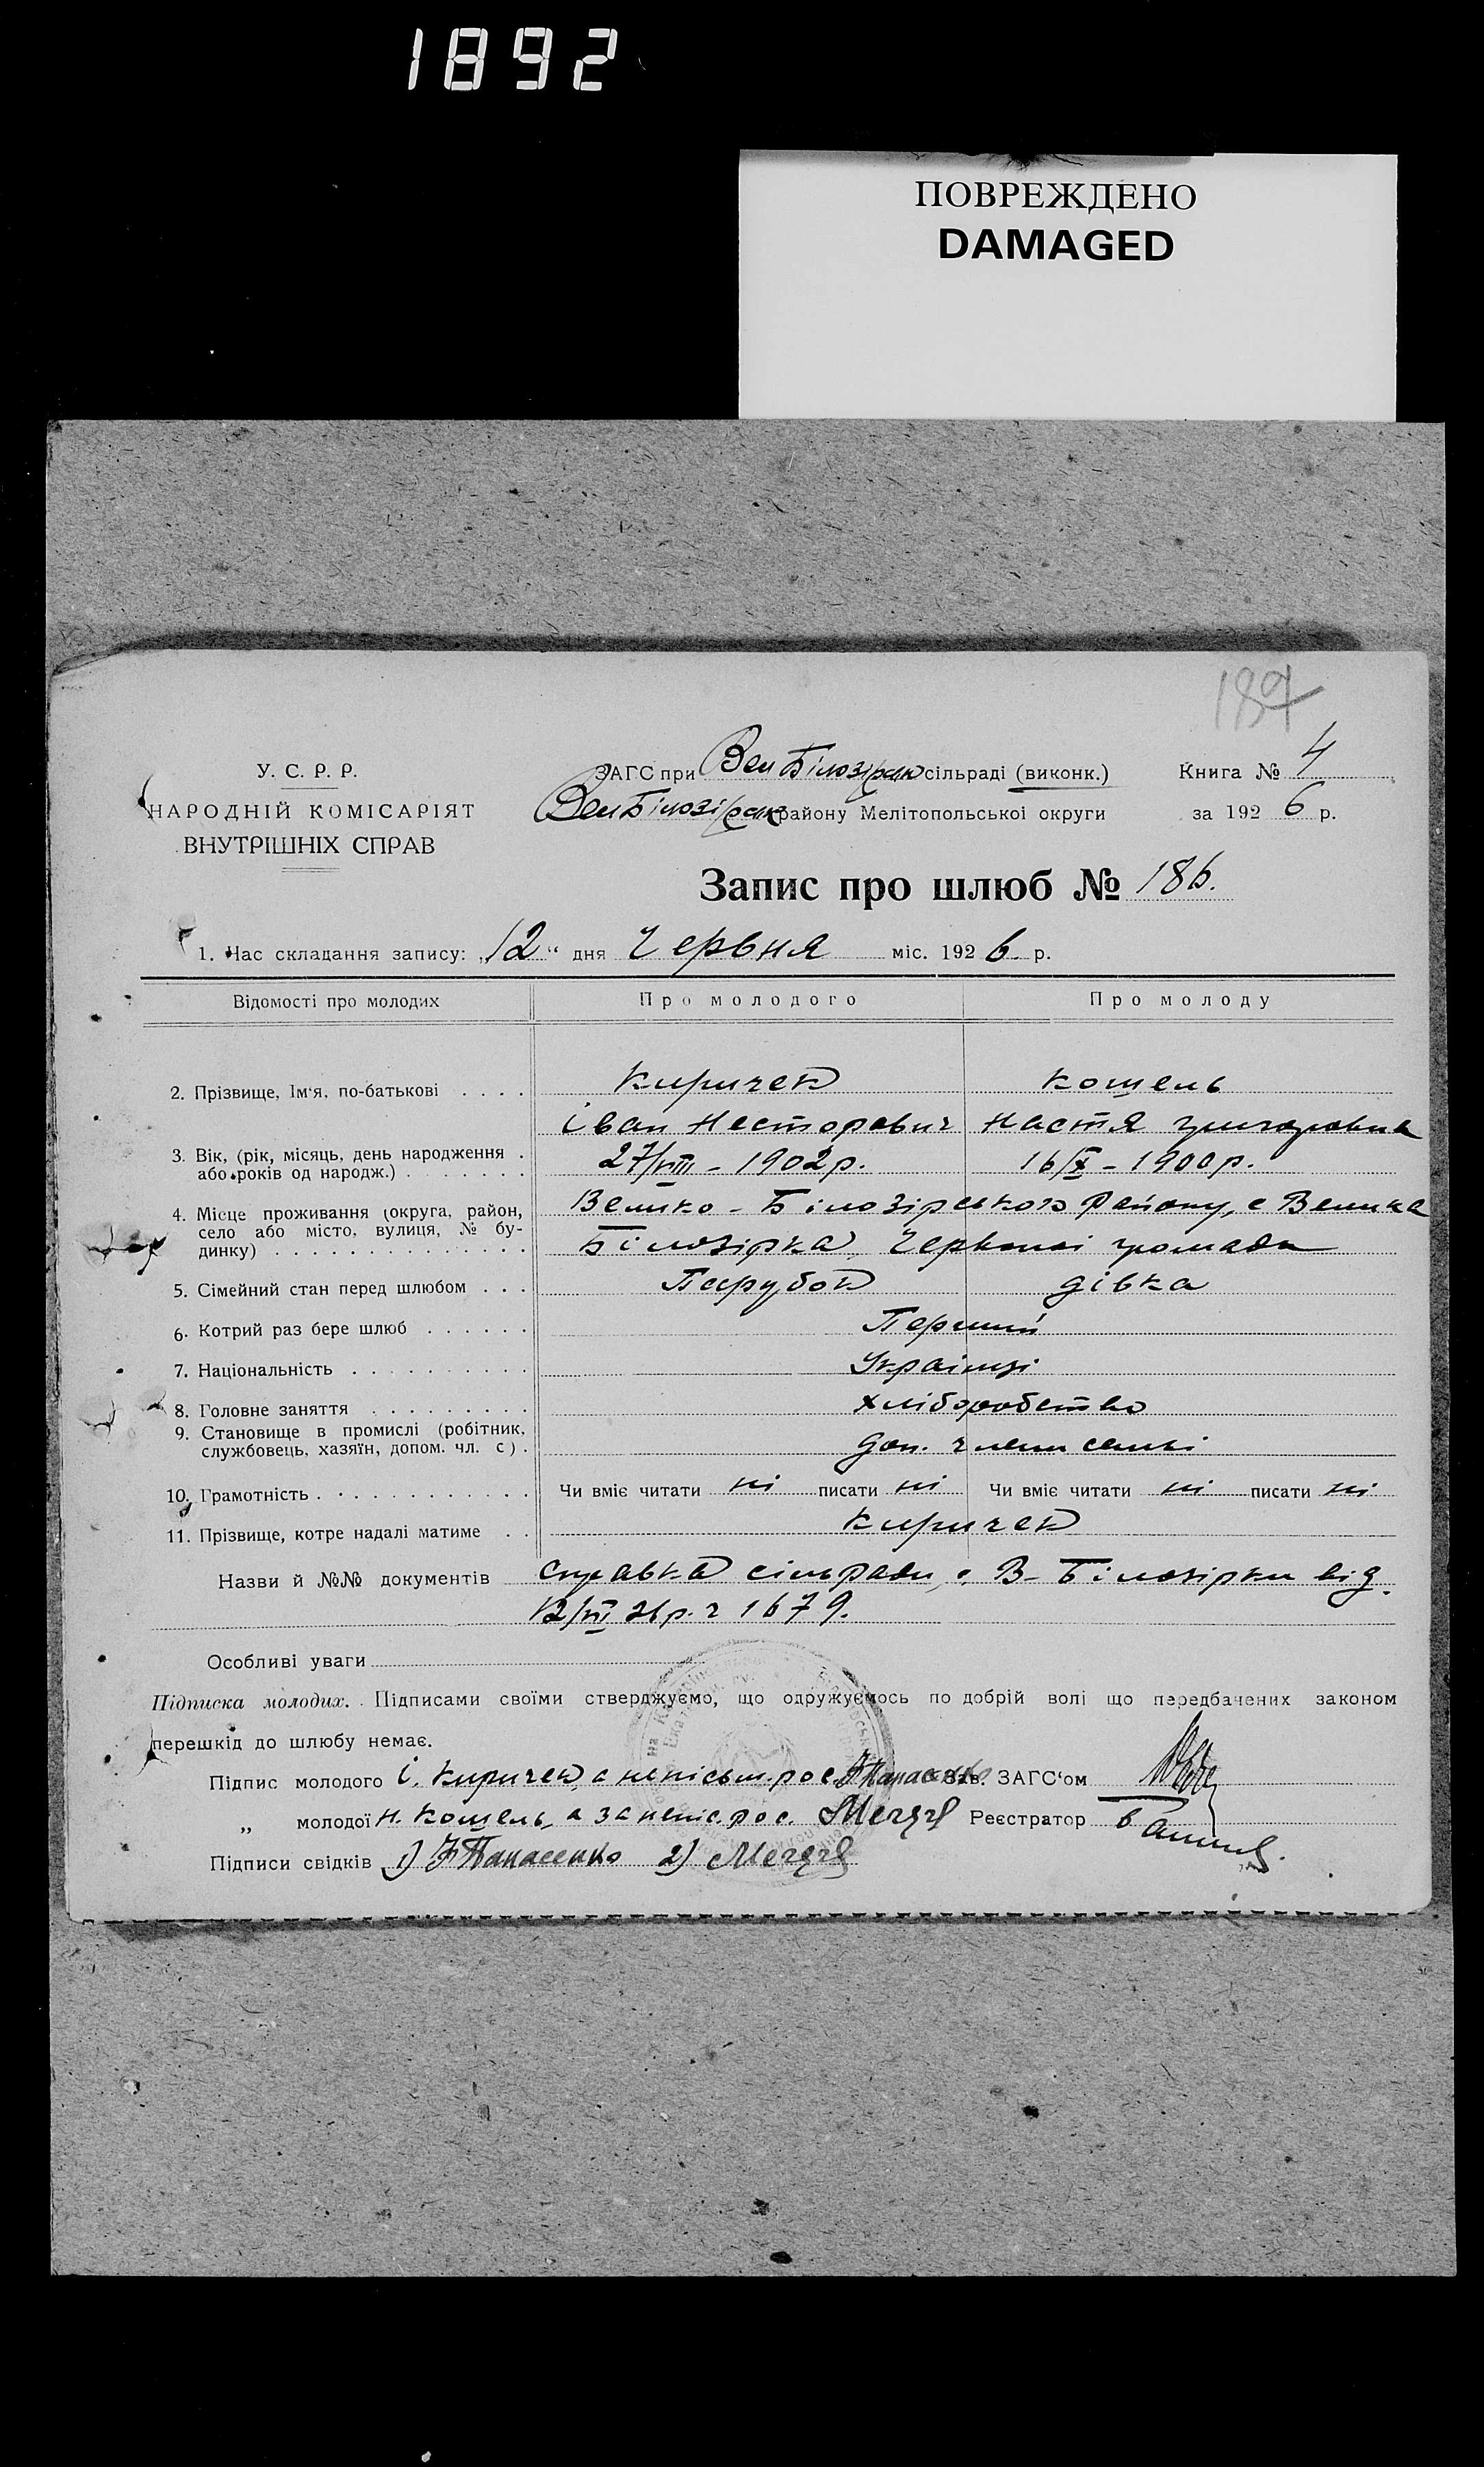 1892
ПОВРЕЖДЕНО
DAMAGED
187
У. С. Р. Р.
НАРОДНІЙ КОМІСАРІЯТ
ВНУТРІШНІХ СПРАВ
ЗАГС при Вел Білозірськ сільраді (виконк.)
Вел Білозірськ району Мелітопольської округи
Книга № 4
за 1926 р.
Запис про шлюб № 186.
1. Час складання запису: „12“ дня Червня міс. 1926. р.
Відомості про молодих Про молодого Про молоду
2. Прізвище, Ім'я, по-батькові . . . . Киричек Кошель
Іван Несторович Настя Григоровна
3. Вік, (рік, місяць, день народження . 27/VIII – 1902р. 16/X – 1900р.
або років од народж.) . . . . . . .
4. Місце проживання (округа, район, Велико - Білозірського району, с Велика
село або місто, вулиця, № бу-
динку) . . . . . . . . . . . . . . Білозірка, Червоної громади
5. Сімейний стан перед шлюбом . . . Парубок дівка
6. Котрий раз бере шлюб . . . . . . Перший
7. Національність . . . . . . . . . . Українці
8. Головне заняття . . . . . . . . . хліборобство
9. Становище в промислі (робітник,
службовець, хазяїн, допом. чл. с) . доп. члени семьі
10. Грамотність . . . . . . . . . . . . Чи вміє читати ні писати ні Чи вміє читати ні писати ні
11. Прізвище, котре надалі матиме . . Киричек
Назви й №№ документів справка сільради, с. В- Білозірки від
12/VI 26р. ч 1679.
Особливі уваги
Підписка молодих. Підписами своїми стверджуємо, що одружуємось по добрій волі що передбачених законом
перешкід до шлюбу немає.
Підпис молодого І. Киричек, а непісьм. рос. Панасенко Зав. ЗАГС'ом
„ молодої Н. Кошель, а за непіс. рос. Реєстратор
Підписи свідків 1) Панасенко 2)